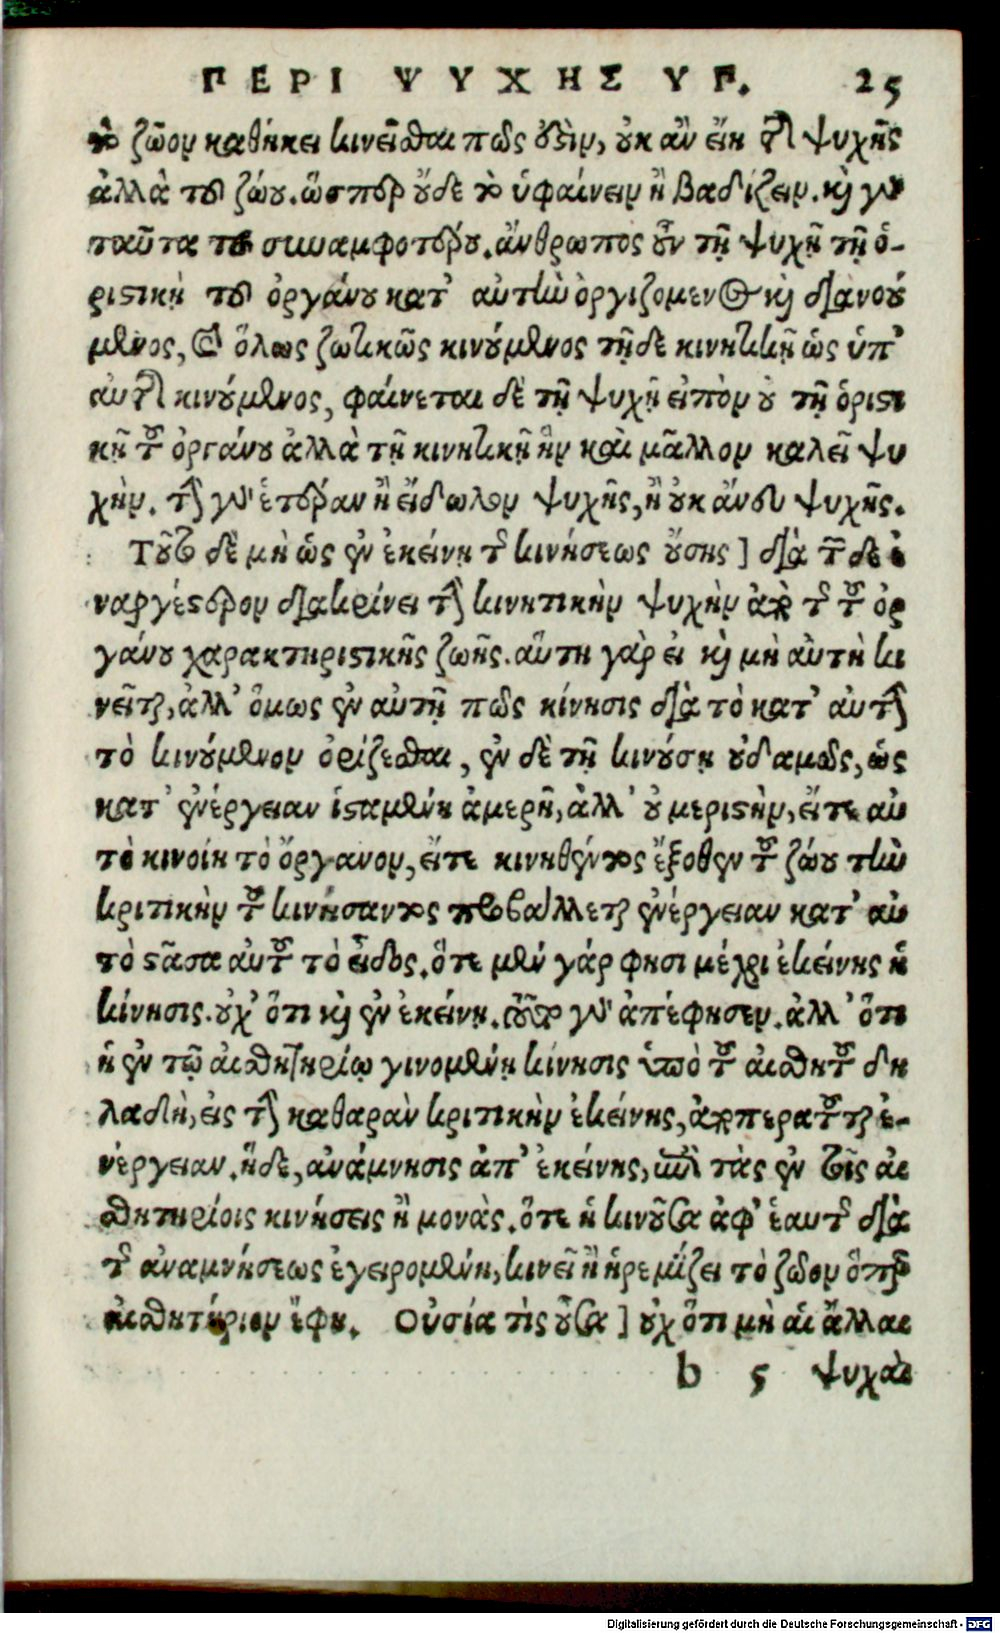 ΠΕΡΙ ΨΥΧΗΣ ΥΓ. 25
τὸ ζῶον καθήκει κινεῖσθαι πῶς οὖσιν, οὐκ ἂν εἴη τῆς ψυχῆς
ἀλλὰ τοῦ ζώου. ὥσπερ οὐδὲ τὸ ὑφαίνειν ἢ βαδίζειν. καὶ γὰρ
ταῦτα τοῦ συναμφοτέρου. ἄνθρωπος οὖν τῇ ψυχῇ τῇ ὁ-
ριστικῇ τοῦ ὀργάνου κατ' αὐτὴν ὀργιζόμενος καὶ διανού
μενος, καὶ ὅλως ζωτικῶς κινούμενος τῇ δὲ κινητικῇ ὡς ὑπ'
αὐτῆς κινούμενος, φαίνεται δὲ τῇ ψυχῇ εἰπὸν οὐ τῇ ὁριστι
κῇ τοῦ ὀργάνου ἀλλὰ τῇ κινητικῇ ἣν καὶ μᾶλλον καλεῖ ψυ
χὴν. τὴν γὰρ ἑτέραν ἢ εἴδωλον ψυχῆς, ἢ οὐκ ἄνευ ψυχῆς.
Τοῦτο δὲ μὴ ὡς ἐν ἐκείνῃ τῆς κινήσεως οὔσης] διὰ τοῦδε ἐ
ναργέστερον διακρίνει τὴν κινητικὴν ψυχὴν ἀπὸ τῆς τοῦ ὀρ
γάνου χαρακτηριστικῆς ζωῆς. αὕτη γὰρ εἰ καὶ μὴ αὐτὴ κι
νεῖται, ἀλλ' ὅμως ἐν αὐτῇ πῶς κίνησις διὰ τὸ κατ' αὐτὴν
τὸ κινούμενον ὁρίζεσθαι, ἐν δὲ τῇ κινούσῃ οὐδαμῶς, ὡς
κατ' ἐνέργειαν ἱσταμένη ἀμερῆ, ἀλλ' οὐ μεριστὴν, εἴτε αὐ
τὸ κινοίη τὸ ὄργανον, εἴτε κινηθέντος ἔξοθεν τοῦ ζώου τὴν
κριτικὴν τοῦ κινήσαντος προβάλλεται ἐνέργειαν κατ' αὐ
τὸ στᾶσα αὐτοῦ τὸ εἶδος. ὅτε μὲν γάρ φησι μέχρι ἐκείνης ἡ
κίνησις. οὐχ' ὅτι καὶ ἐν ἐκείνῃ. τοῦτο γὰρ ἀπέφησεν. ἀλλ' ὅτι
ἡ ἐν τῷ αἰσθητηρίῳ γινομένη κίνησις ὑπὸ τοῦ αἰσθητοῦ δη
λαδὴ, εἰς τὴν καθαρὰν κριτικὴν ἐκείνης, ἀποπερατοῦται ἐ-
νέργειαν. ἡ δὲ, ἀνάμνησις ἀπ' ἐκείνης, ἐπὶ τὰς ἐν τοῖς αἰ
σθητηρίοις κινήσεις ἢ μονὰς. ὅτε ἡ κινοῦσα ἀφ' ἑαυτῆς διὰ
τῆς ἀναμνήσεως ἐγειρομένη, κινεῖ ἢ ἠρεμίζει τὸ ζῶον ὅπερ
αἰσθητήριον ἔφη. Οὐσία τὶς οὖσα] οὐχ ὅτι μὴ αἱ ἄλλαι
b 5 ψυχαὶ
Digitalisierung gefördert durch die Deutsche Forschungsgemeinschaft - DFG